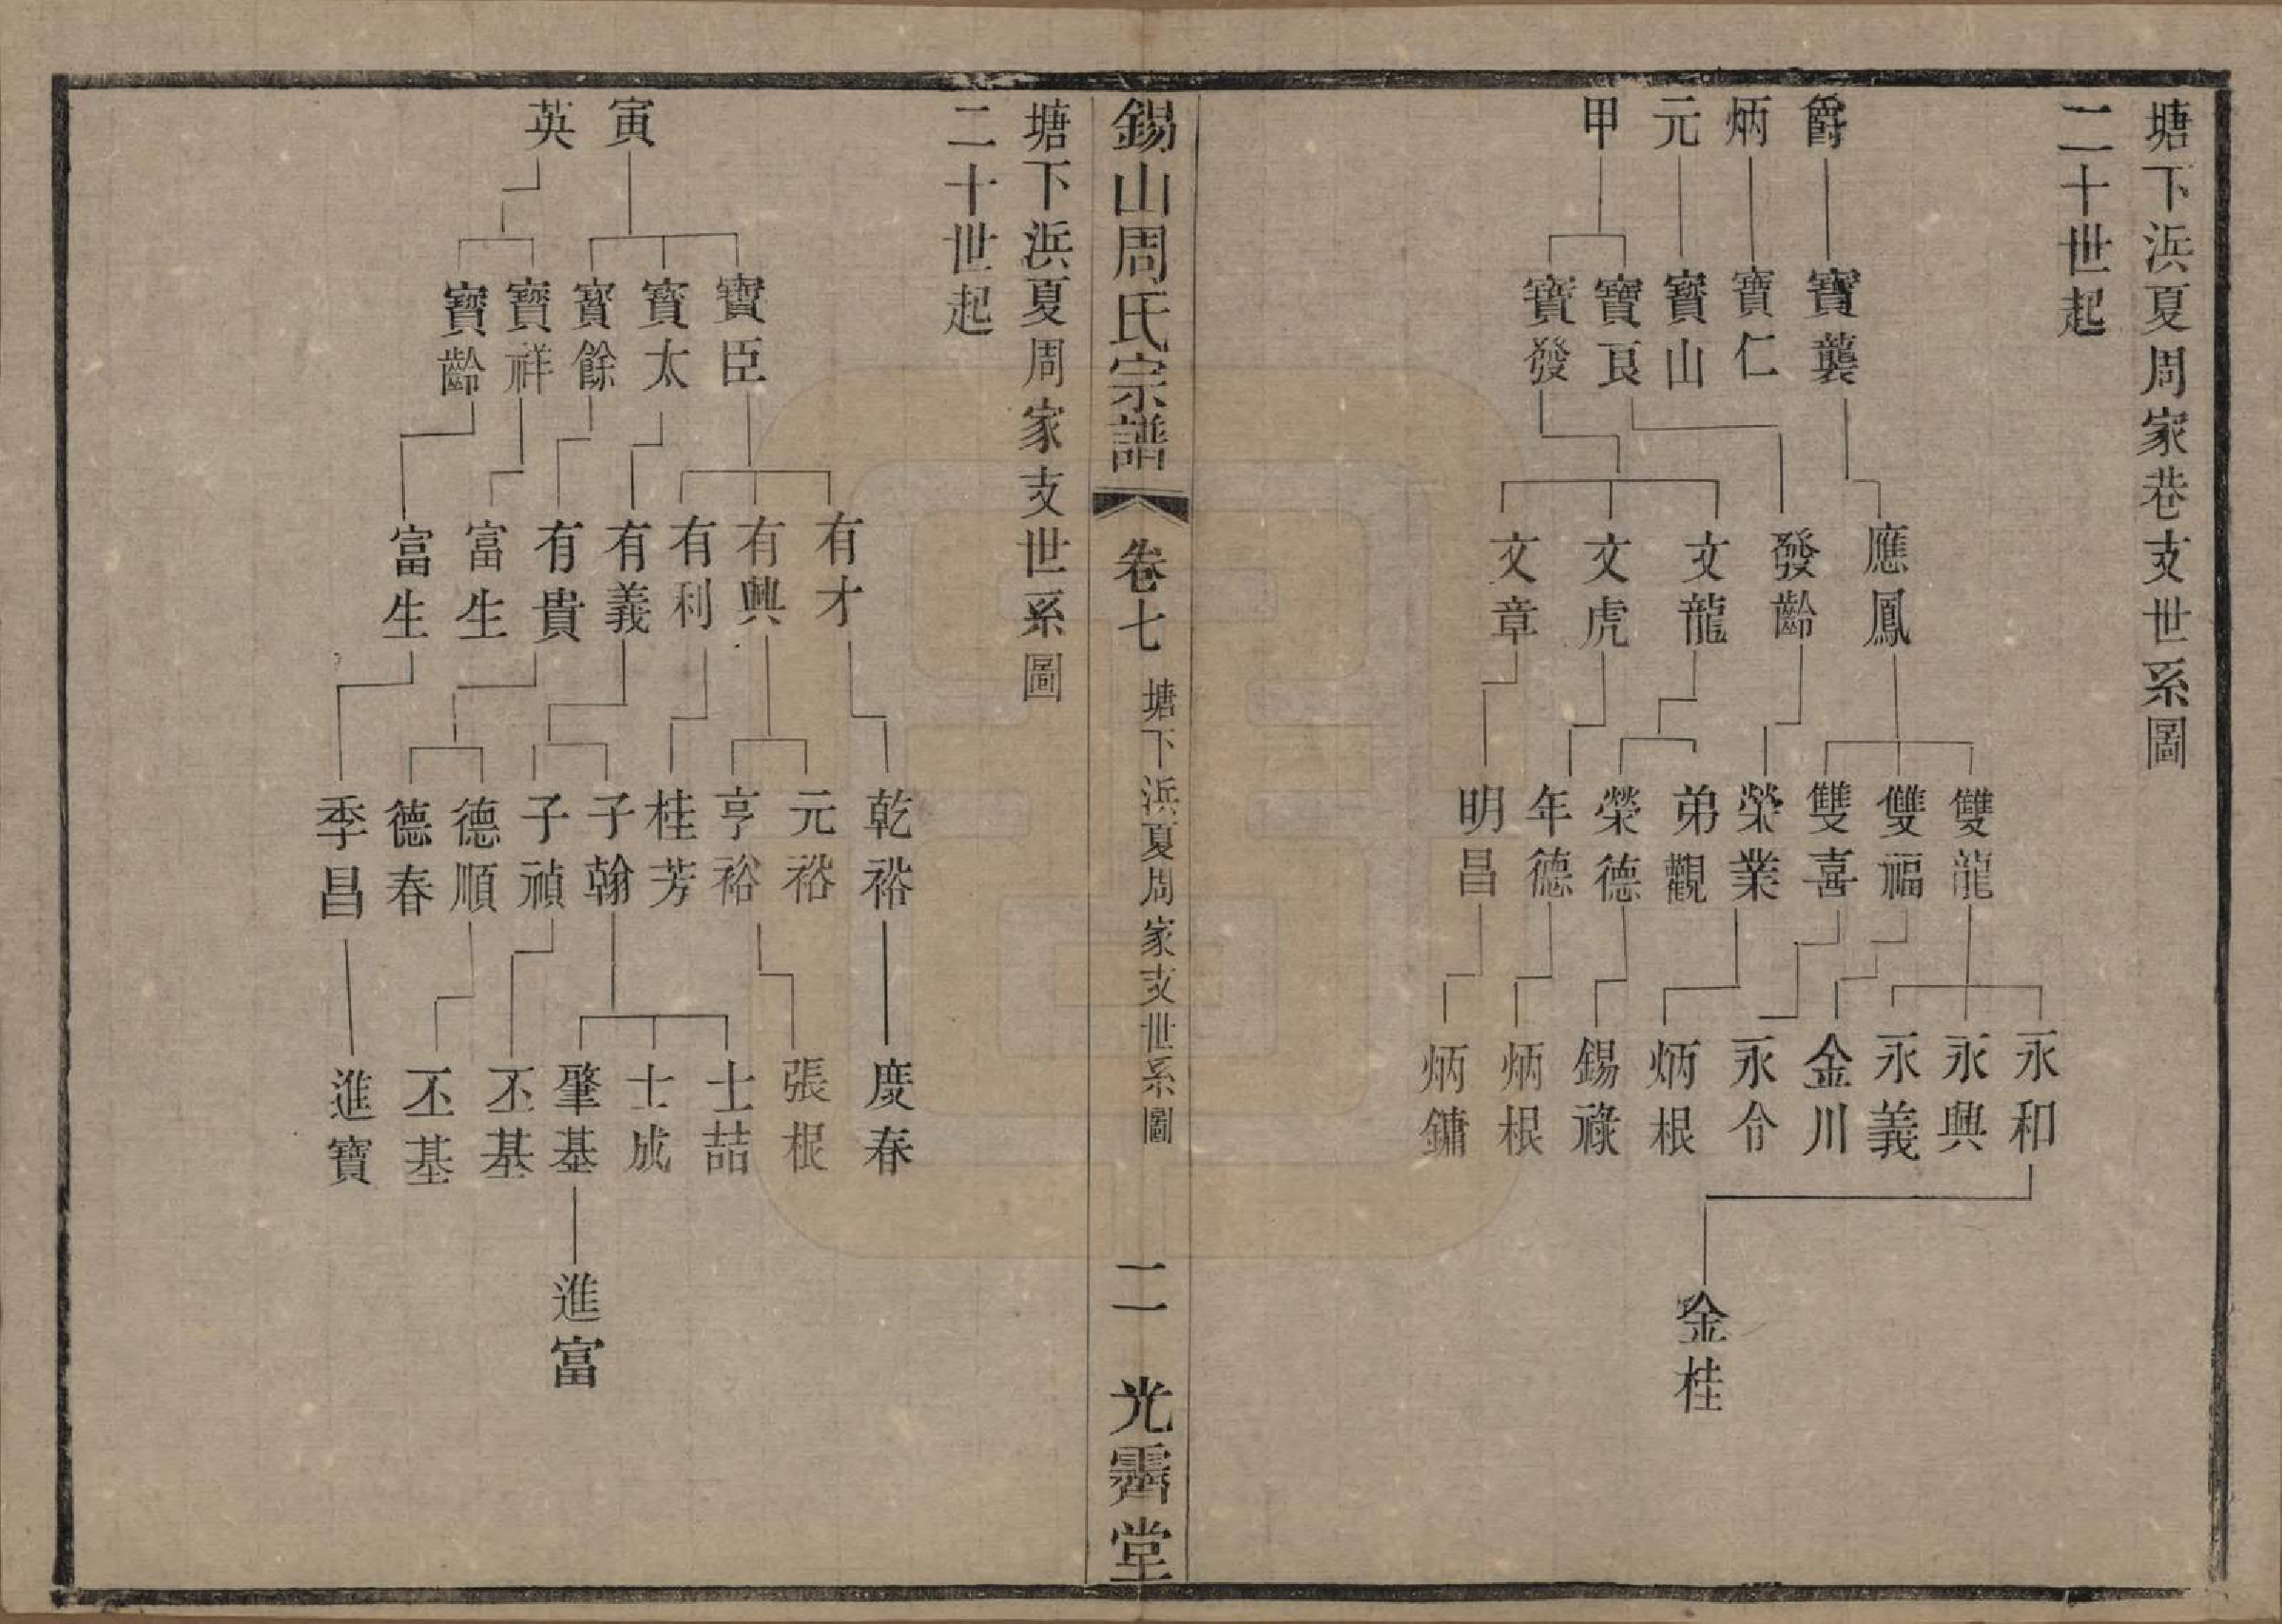 塘下浜夏周家巷支世系圖
二十世起
爵
炳
元
甲
寶襲
寶仁
寶山
寶良
寶發
應鳳
發齡
文龍
文虎
文章
雙龍
雙福
雙喜
榮業
弟觀
榮德
年德
明昌
永和
永興
永義
金川
永令
炳根
錫祿
炳根
炳鏞
金桂
錫山周氏宗譜
卷七
塘下浜夏周家支世系圖
二
光霽堂
塘下浜夏周家支世系圖
二十世起
寅
英
寶臣
寶太
寶餘
寶祥
寶齡
有才
有興
有利
有義
有貴
富生
富生
乾裕
元裕
亨裕
桂芳
子翰
子禎
德順
德春
季昌
慶春
張根
士喆
士成
肇基
丕基
丕基
進寶
進富